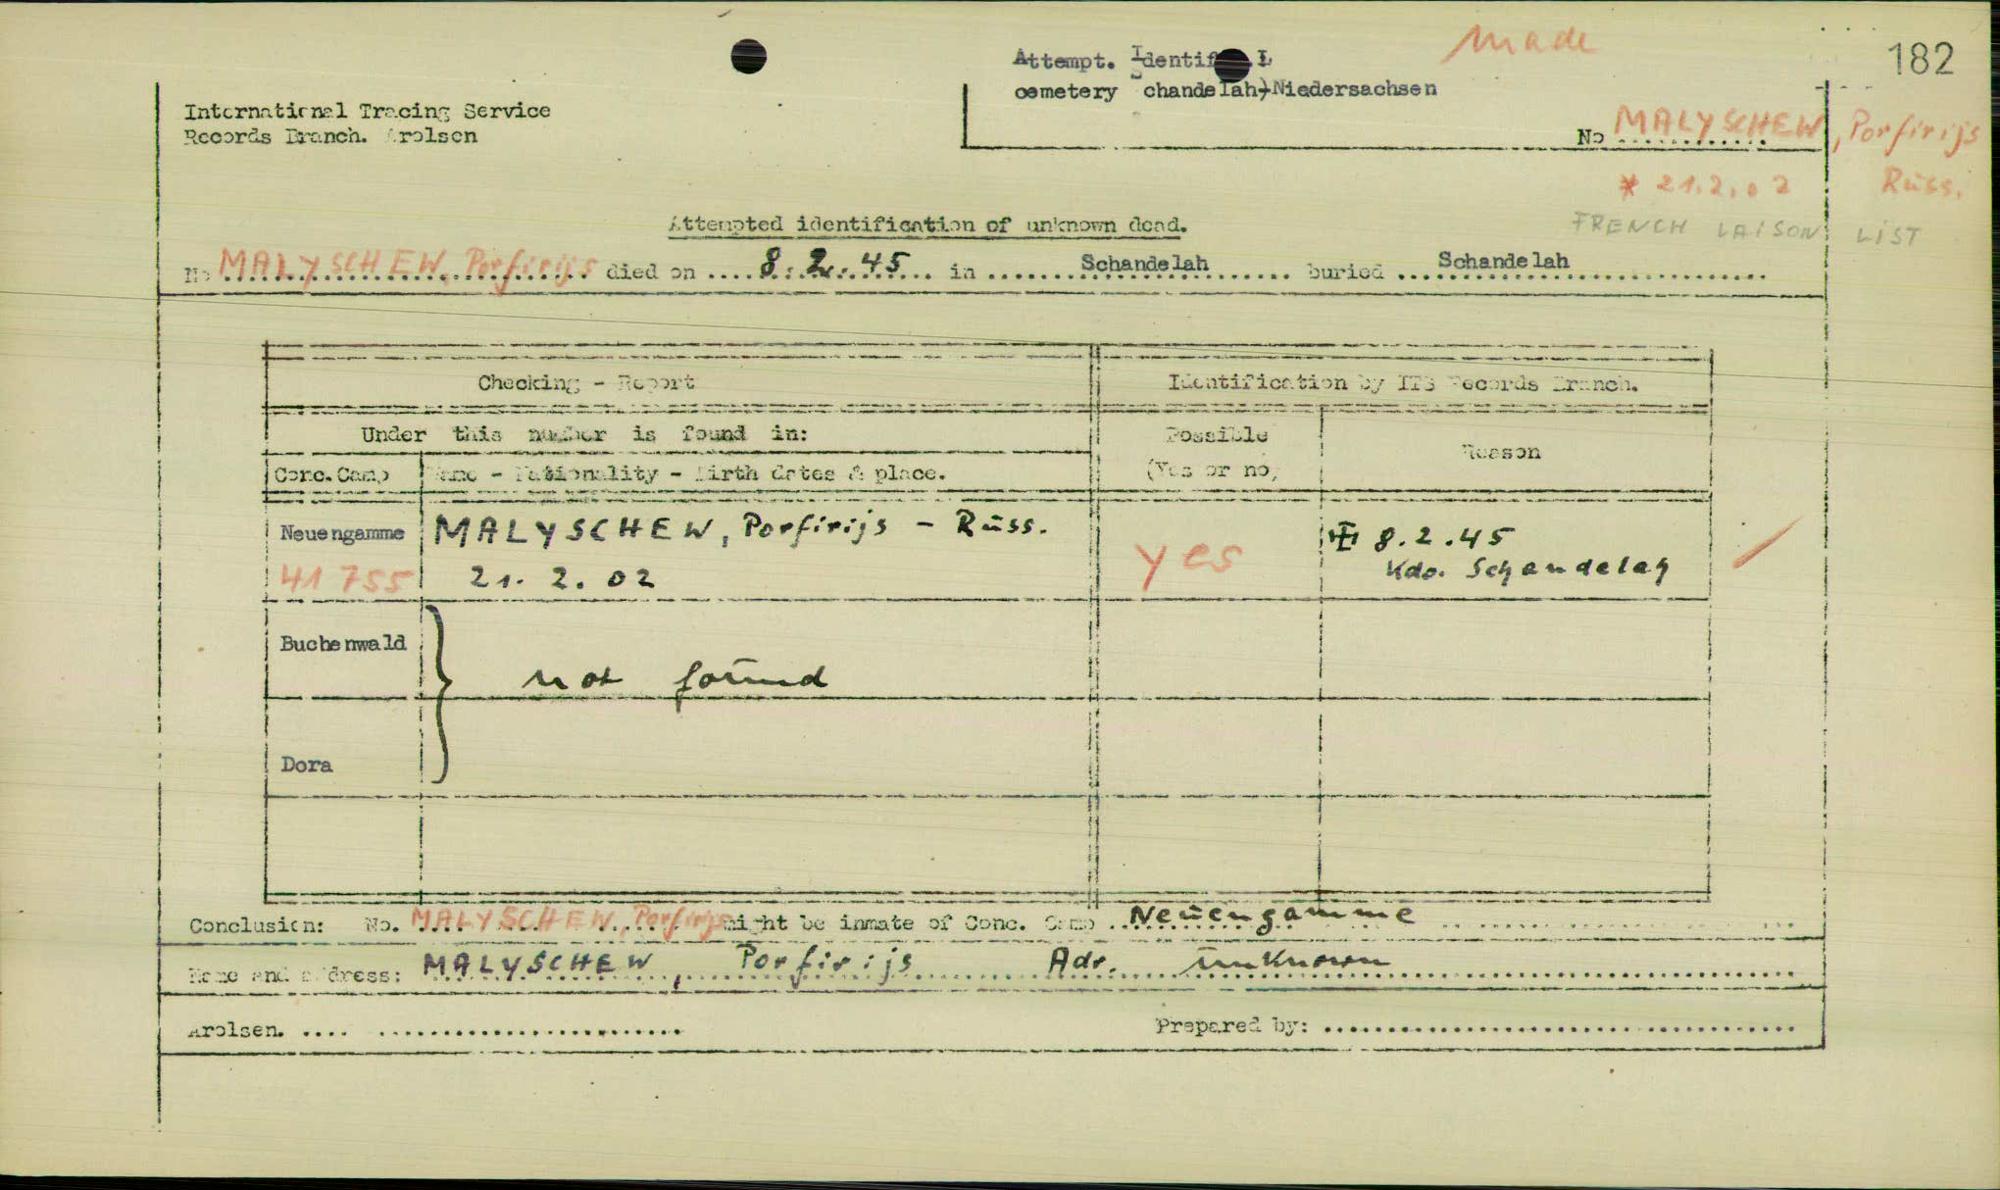 made
182
Attempt. Identif
cemetery Schandelah, Niedersachsen
International Tracing Service
Records Branch. Arolsen
No MALYSCHEW, Porfirijs
* 21.2.02 Russ.
FRENCH LAISON LIST
Attempted identification of unknown dead.
No MALYSCHEW, Porfirijs died on 8.2.45 in Schandelah buried Schandelah
Checking - Report Identification by ITS Records Branch.
Under this number is found in: Possible Reason
Conc.Camp Name - Nationality - Birth dates & place. (Yes or no)
Neuengamme MALYSCHEW, Porfirijs - Russ. yes 8.2.45
41755 21. 2. 02 Kdo. Schandelah
Buchenwald
not found
Dora
Conclusion: No. MALYSCHEW, Porfirijs might be inmate of Conc. Camp Neuengamme
Name and address: MALYSCHEW, Porfirijs Adr. unknown
Arolsen. .... ........................ Prepared by: ....................................